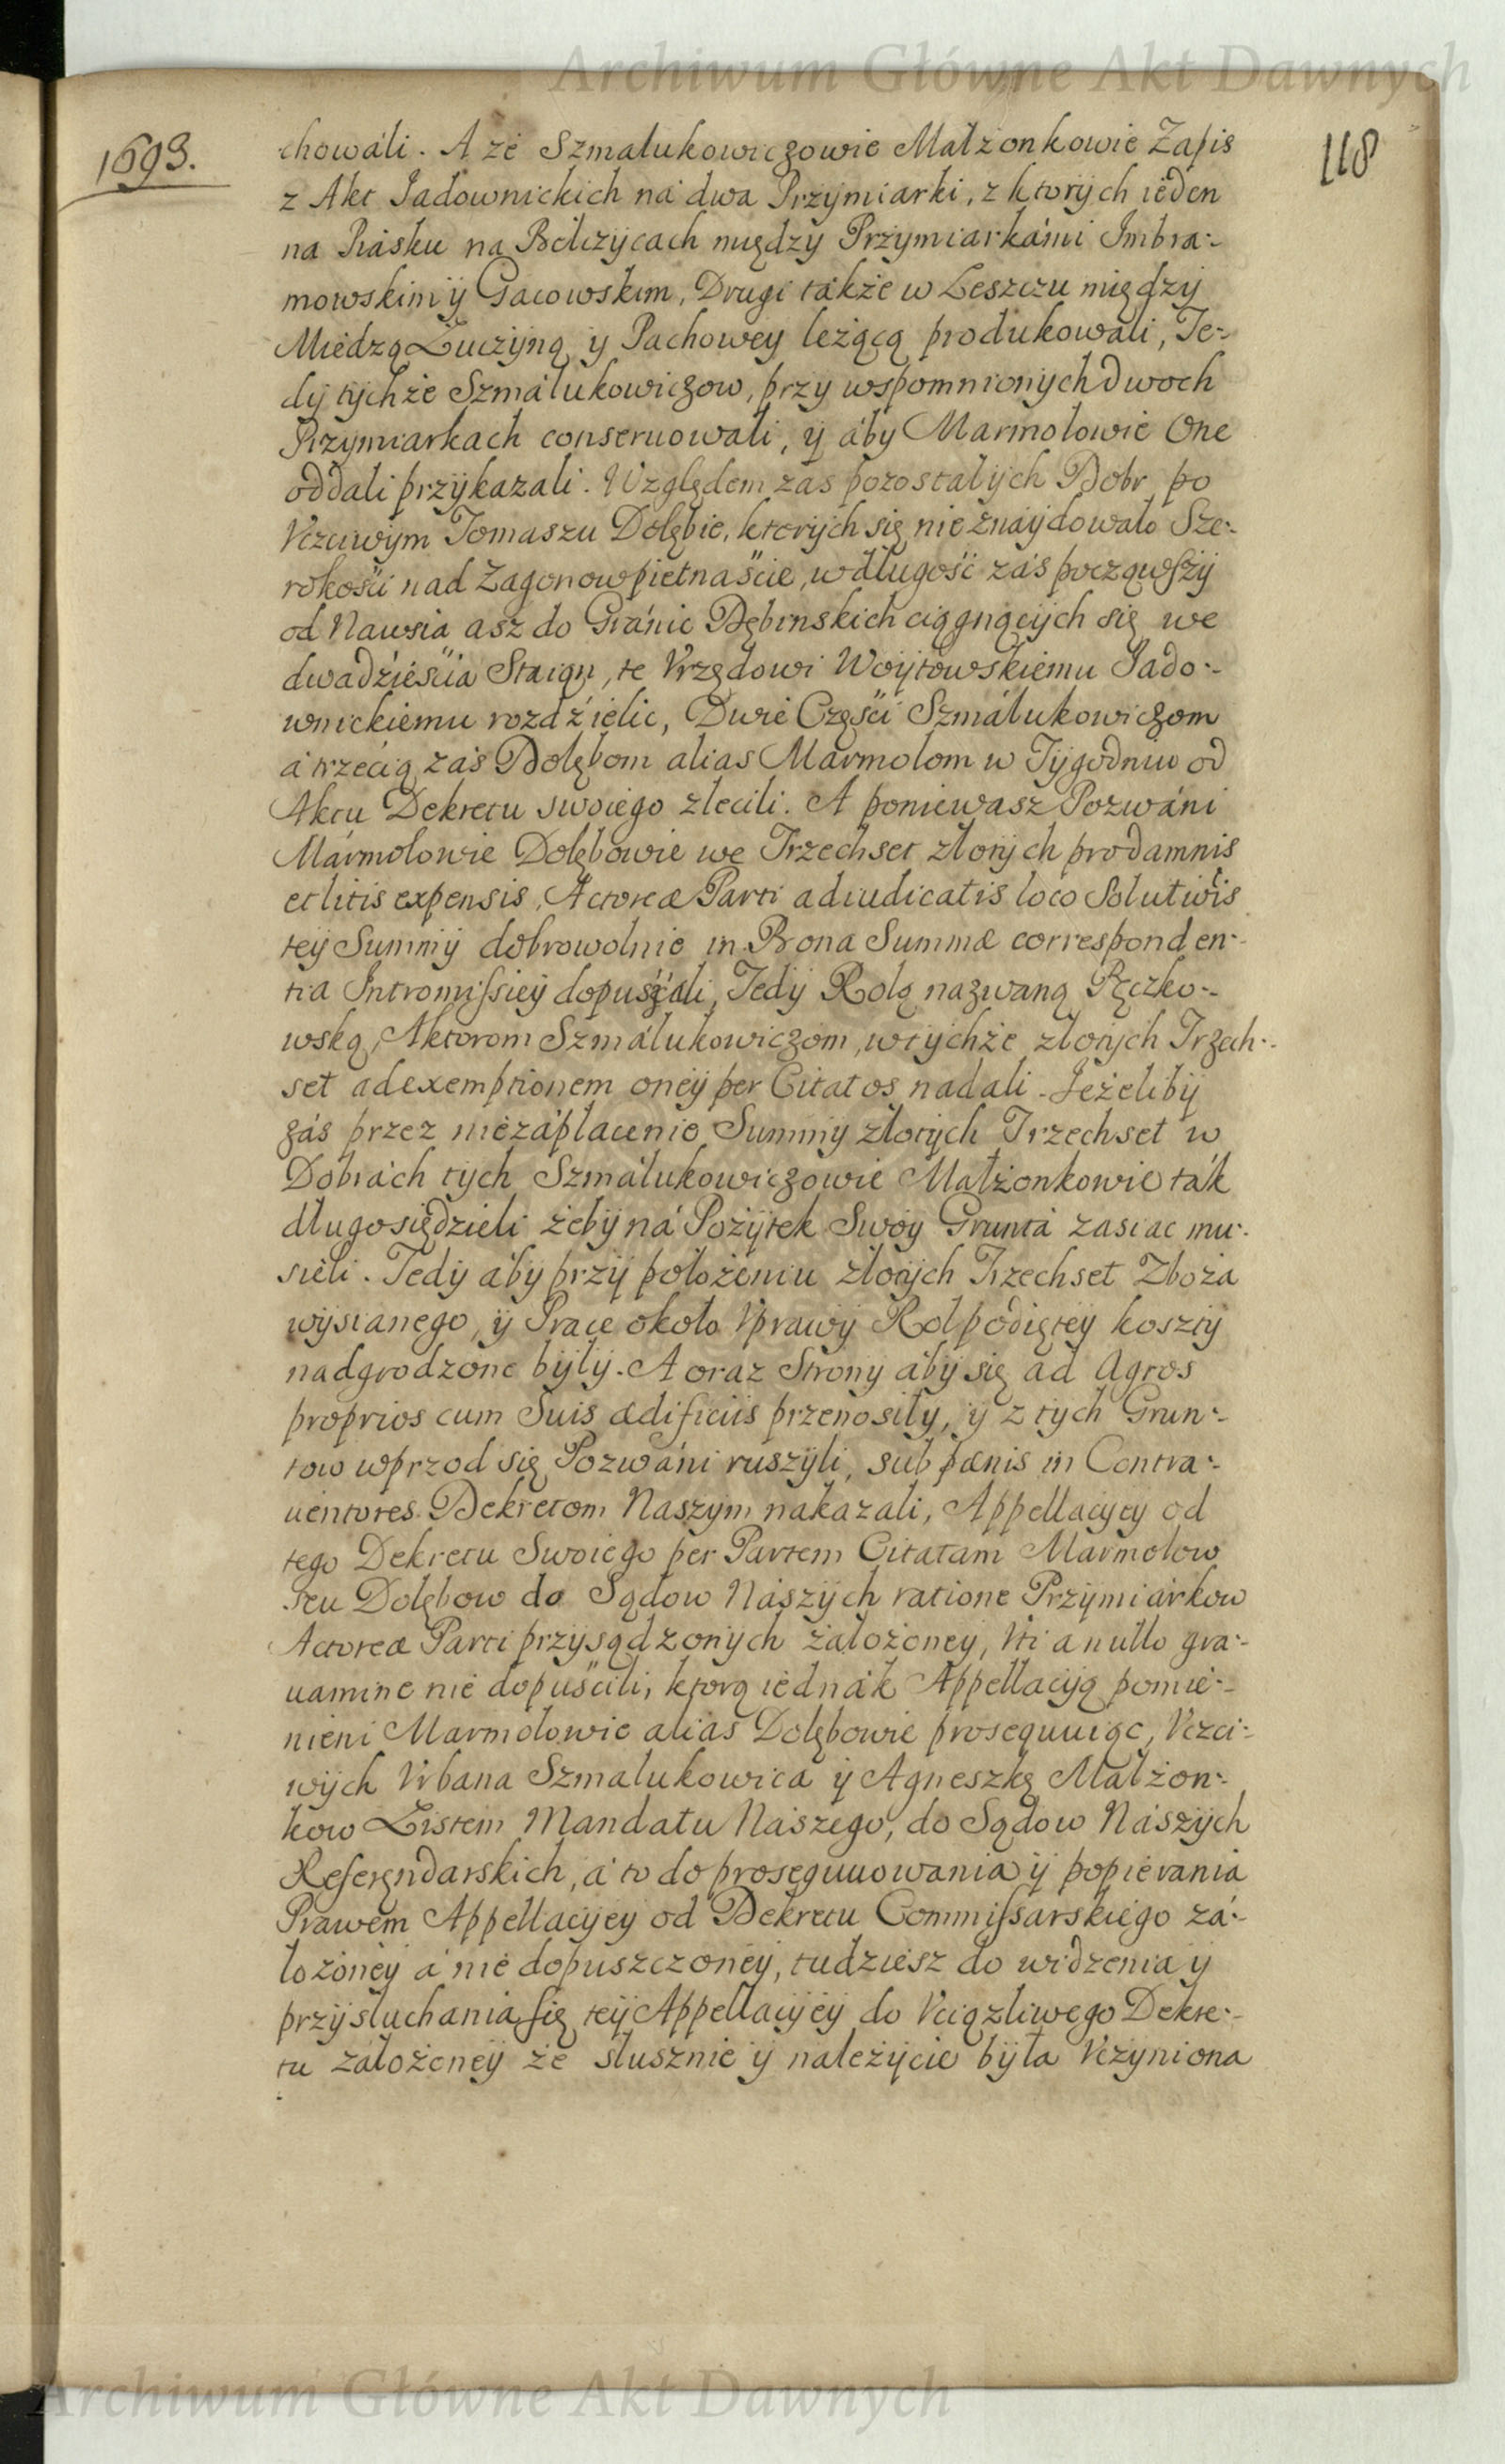 Archiwum Główne Akt Dawnych
1693.
118
chowáli. A że Szmalukowiczowie Małżonkowie Zapis
z Akt Jadownickich ná dwa Przymiarki, z ktorych ieden
na Piásku na Bełczycach między Przymiarkámi Imbra:-
mowskim ÿ Gacowskim, Drugi tákże w Leszczu między
Miedzą Łuczÿną ÿ Pachowey leżącą produkowali, Te-
dÿ tÿchże Szmálukowiczow, przy wspomnionÿch dwoch
Przymiarkach conseruowali, ÿ áby Marmolowie One
oddali przÿkazali. Względem zas pozostałÿch Dobr po
Vczciwÿm Tomaszu Dołębie, ktorÿch się nie znáÿdowało Sze:-
rokości nad Zagonow pietnaście, w długość záś począwszÿ
od Nawsia asz do Gránic Dębinskich ciągnącÿch się we
dwadzieścia Staiąn, te Vrzędowi Woÿtowskiemu Jado:-
wnickiemu rozdźielic, Dwie Części Szmálukowiczom
á trzecią záś Dołębom alias Marmolom w Tÿgodniu od
Aktu Dekretu swoiego zlecili. A poniewasz Pozwáni
Mármolowie Dołębowie we Trzechset złotÿch pro damnis
et litis expensis, Actoreæ Parti adiudicatis loco Solutiois
teÿ Summÿ dobrowolnie in Bona Summæ corresponden:-
tia Intromissieÿ dopuścili, Tedÿ Rolą nazwaną Pęczko:-
wską, Aktorom Szmálukowiczom, w tÿchże złotÿch Trzech:-
set ad exemptionem oneÿ per Citatos nadali. Jeżelibÿ
záś przez niezápłacenie Summÿ złotÿch Trzechset w
Dobrách tÿch Szmálukowiczowie Małżonkowie ták
długo siedzieli żebÿ ná Pożÿtek Swoy Grunta zasiac mu:-
sieli. Tedÿ ábÿ przÿ położeniu złotÿch Trzechset Zboża
wÿsianego, ÿ Prace około Vprawÿ Rol podiętey kosztÿ
nadgrodzone bÿłÿ. A oraz Stronÿ ábÿ się ad Agros
proprios cum Suis ædificiis przenosiłÿ, ÿ z tÿch Grun:-
tow wprzod się Pozwáni ruszÿli, sub pœnis in Contra:-
uentores Dekretom Naszÿm nakazali, Appellacÿey od
tego Dekretu Swoiego per Partem Citatam Marmolow
seu Dołębow do Sądow Nászÿch ratione Przÿmiárkow
Actoreæ Parti przÿsądzonÿch záłożoney, Vti a nullo gra:-
uamine nie dopuścili, ktorą iednák Appellacÿą pomie:-
nieni Marmolowie alias Dołębowie prosequuiąc, Vczci:-
wÿch Vrbana Szmalukowica ÿ Agneszkę Małżon:-
kow Listem Mandatu Nászego, do Sądow Nászÿch
Referendarskich, á to do prosequuowania ÿ popierania
Prawem Appellacÿey od Dekretu Commissarskiego zá:-
łożoneÿ á nie dopuszczoneÿ, tudziesz do widzenia ÿ
przÿsłuchania się teÿ Appellacÿeÿ do Vciązliwego Dekre:-
tu záłożoneÿ że słusznie ÿ należÿcie bÿła Vczÿniona
Archiwum Główne Akt Dawnych